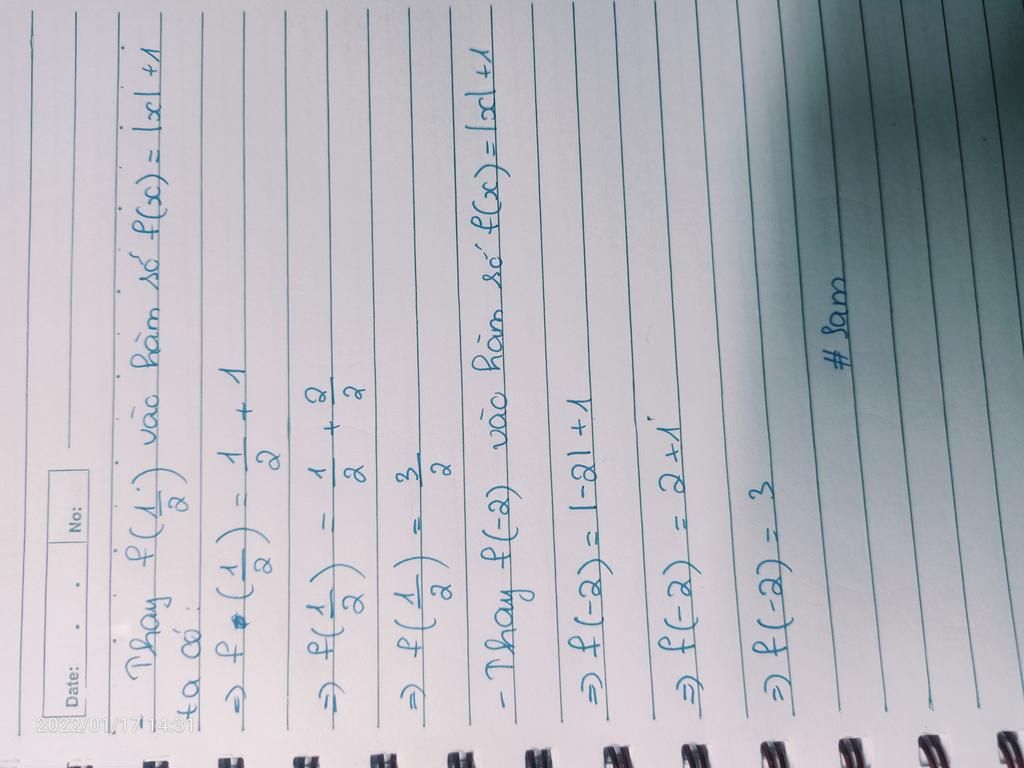 Date: . . No:
- Thay f(1/2) vào hàm số f(x) = |x| + 1
ta có:
=) f (1/2) = 1/2 + 1
=) f(1/2) = 1/2 + 2/2
=) f(1/2) = 3/2
- Thay f(-2) vào hàm số f(x) = |x| + 1
=) f(-2) = |-2| + 1
=) f(-2) = 2 + 1
=) f(-2) = 3
# Sam
2022/01/17 14:31